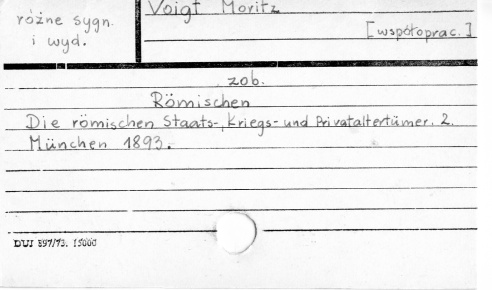 różne sygn.
i wyd.
Voigt Moritz
[współoprac.]
zob.
Römischen
Die römischen Staats-, Kriegs- und Privataltertümer. 2.
München 1893.
DUJ 897/73. 15000